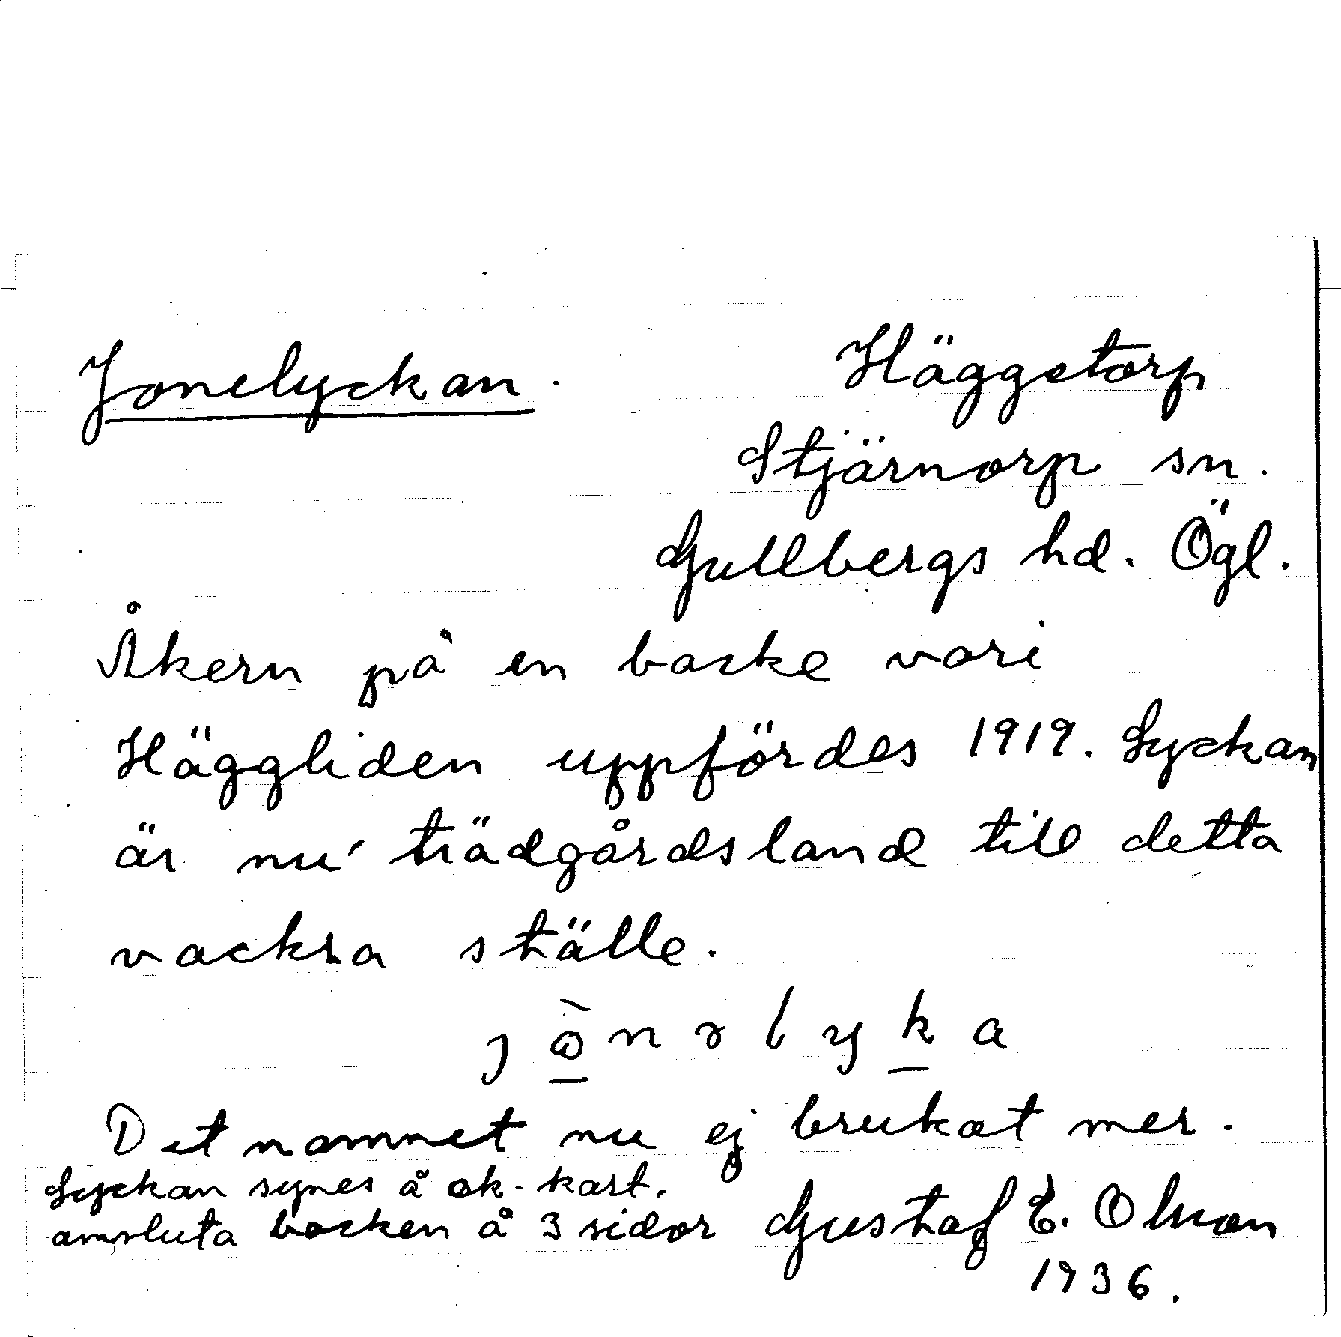 Jonelyckan.
Häggetorp
Stjärnorp sn.
Gullbergs hd. Ögl.
Åkern på en backe vari
Häggliden uppfördes 1919. Lyckan
är nu trädgårdsland till detta
vackra ställe.
Det namnet nu ej brukat mer.
Lyckan synes å ek-kart.
omsluta backen å 3 sidor
Gustaf E. Olson
1936.